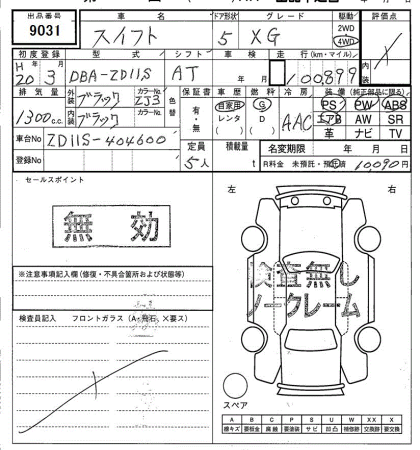 出品番号 車名 ドア形状 グレード 駆動 評価点
9031 スイフト 5 XG 2WD 4WD
初度登録 型式 シフト 車検 走行(km・マイル) 内装
H20 3 DBA-ZD11S AT 年 月 100899
排気量 外装 カラーNo. 色替 保証書 車歴 燃料 冷房 装備(純正部品に限る)
1300c.c. ブラック ZJ3 有・無 自家用 レンタ G D AAC PS PW ABS
内装 ブラック カラーNo. エアB AW SR
革 ナビ TV
車台No ZD11S-404600 定員 積載量 名変期限 年 月 日
登録No 5人 t R料金 未預託・預託済 10,090円
セールスポイント 左 右
無効
※注意事項記入欄(修復・不具合箇所および状態等)
検査無し
ノークレーム
検査員記入 フロントガラス(A・飛石、X要ス)
スペア
A B C P S U W X XX